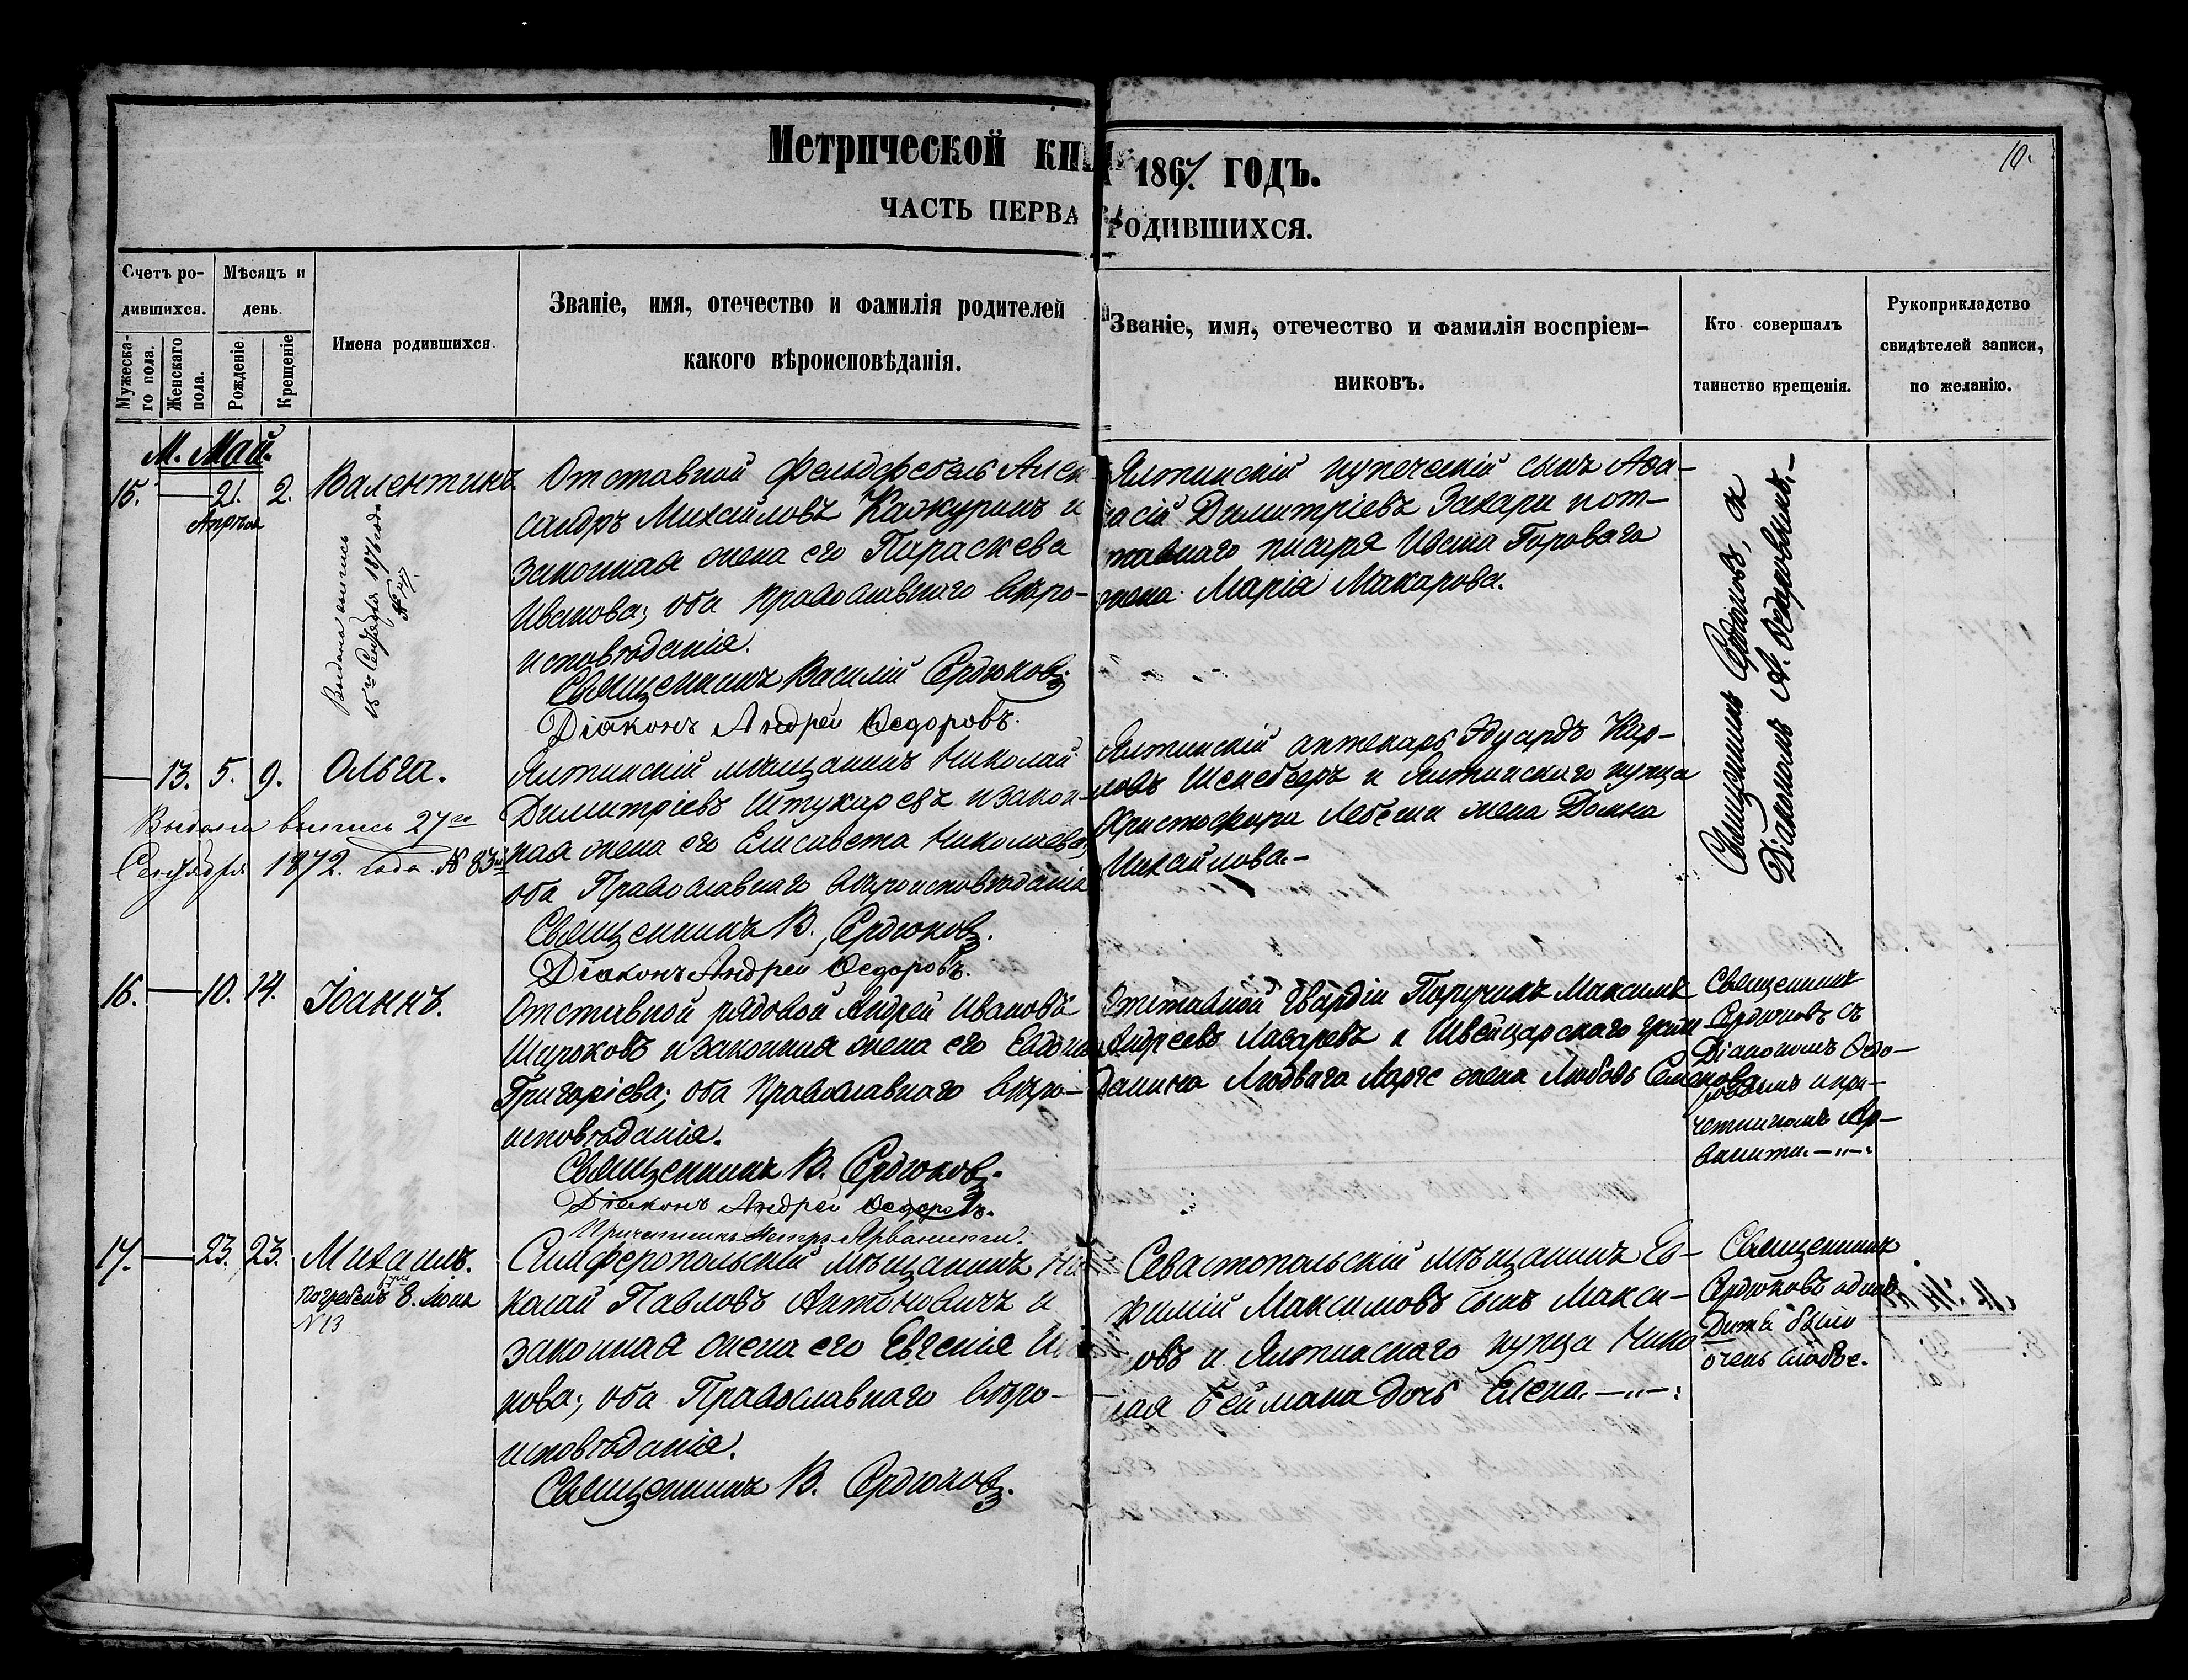 Метрической кни
ЧАСТЬ ПЕРВА
1867. ГОДЪ.
РОДИВШИХСЯ.
10.
Счетъ ро-
дившихся.
Мѣсяцъ и
день.
Мужеска-
го пола.
Женскаго
пола.
Рожденіе.
Крещеніе
Имена родившихся.
Званіе, имя, отечество и фамилія родителей
какого вѣроисповѣданія.
Званіе, имя, отечество и фамилія воспріем-
никовъ.
Кто совершалъ
таинство крещенія.
Рукоприкладство
свидѣтелей записи,
по желанію.
М. Май.
15. — 21. 2. Валентинъ.
Апрѣля
Выдана выпись
15го Сентября 1876 года
№ 47.
Отставной фельдфебель Алек
сандръ Михайловъ Кажуринъ и
законная жена его Параскева
Иванова; оба православнаго вѣро-
исповѣданія.
Священникъ Василій Сердюковъ.
Діаконъ Андрей Ѳедоровъ.
Ялтинскій купеческій сынъ Аѳа-
насій Димитріевъ Захари и от-
ставнаго писаря Ивана Гороваго
жена Марія Макарова.
Священникъ Сердюковъ, съ
Діакономъ А. Ѳедоровымъ.—
— 13. 5. 9. Ольга.
Выдана выпись 27го
Сентября 1872. года. № 83й
Ялтинскій мѣщанинъ Николай
Димитріевъ Штукаревъ и закон-
ная жена его Елисавета Николаева;
оба Православнаго вѣроисповѣданія
Священникъ В. Сердюковъ.
Діаконъ Андрей Ѳедоровъ.
Ялтинскій аптекарь Эдуардъ Кар-
ловъ и Ялтинскаго купца
Христофора жена Домна
Михайлова.—
16. — 10. 14. Іоаннъ.
Отставной рядовой Андрей Ивановъ
и законная жена его Евдокія
Григоріева; оба православнаго вѣро-
исповѣданія.
Священникъ В. Сердюковъ.
Діаконъ Андрей Ѳедоровъ.
Причетникъ Петръ Арванити.
Отставной Гвардіи Поручикъ Максимъ
Андреевъ Лазаревъ и Швейцарскаго граж
данина Людвига жена Любовь Семенова
Священникъ
Сердюковъ съ
Діакономъ Ѳедо-
ровымъ и при-
четникомъ Ар-
ванити.—„—:
17. — 23. 23. Михаилъ.
Погребенъ 8. Іюня
N 13
Симферопольскій мѣщанинъ Ни
колай Павловъ Антоновичъ и
законная жена его Евгенія И
нова; оба Православнаго вѣро-
исповѣданія.
Священникъ В. Сердюковъ.
Севастопольскій мѣщанинъ Ев-
фимій Максимовъ сынъ Макси-
овъ и Ялтинскаго купца Нико
лая Геймана дочь Елена.—„—:
Священникъ
Сердюковъ одинъ
Дитя было
очень слабое.